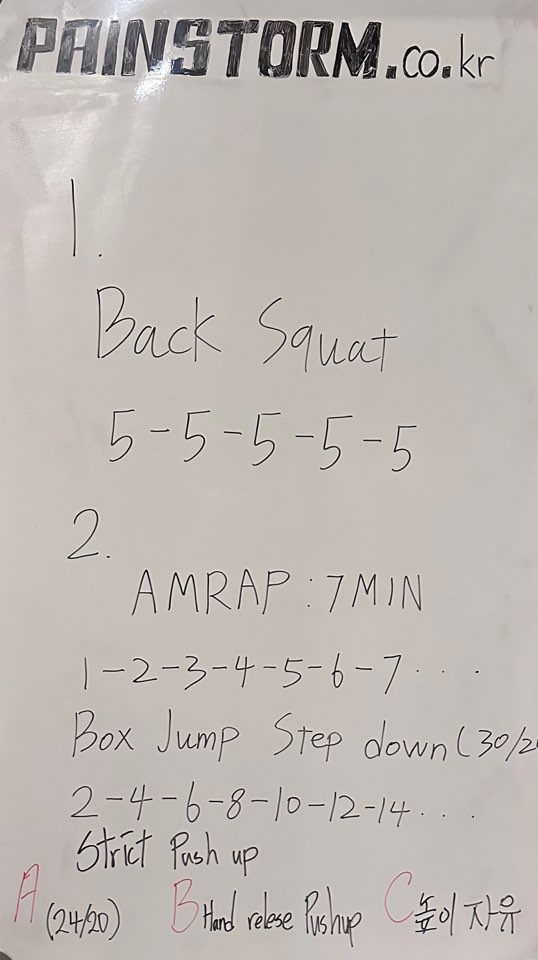 PAINSTORM.co.kr
1.
Back Squat
5-5-5-5-5
2.
AMRAP : 7 MIN
1-2-3-4-5-6-7 . . .
Box Jump Step down
2-4-6-8-10-12-14 . . .
Strict Push up
A (24/20) B Hand relese Pushup C 높이 자유